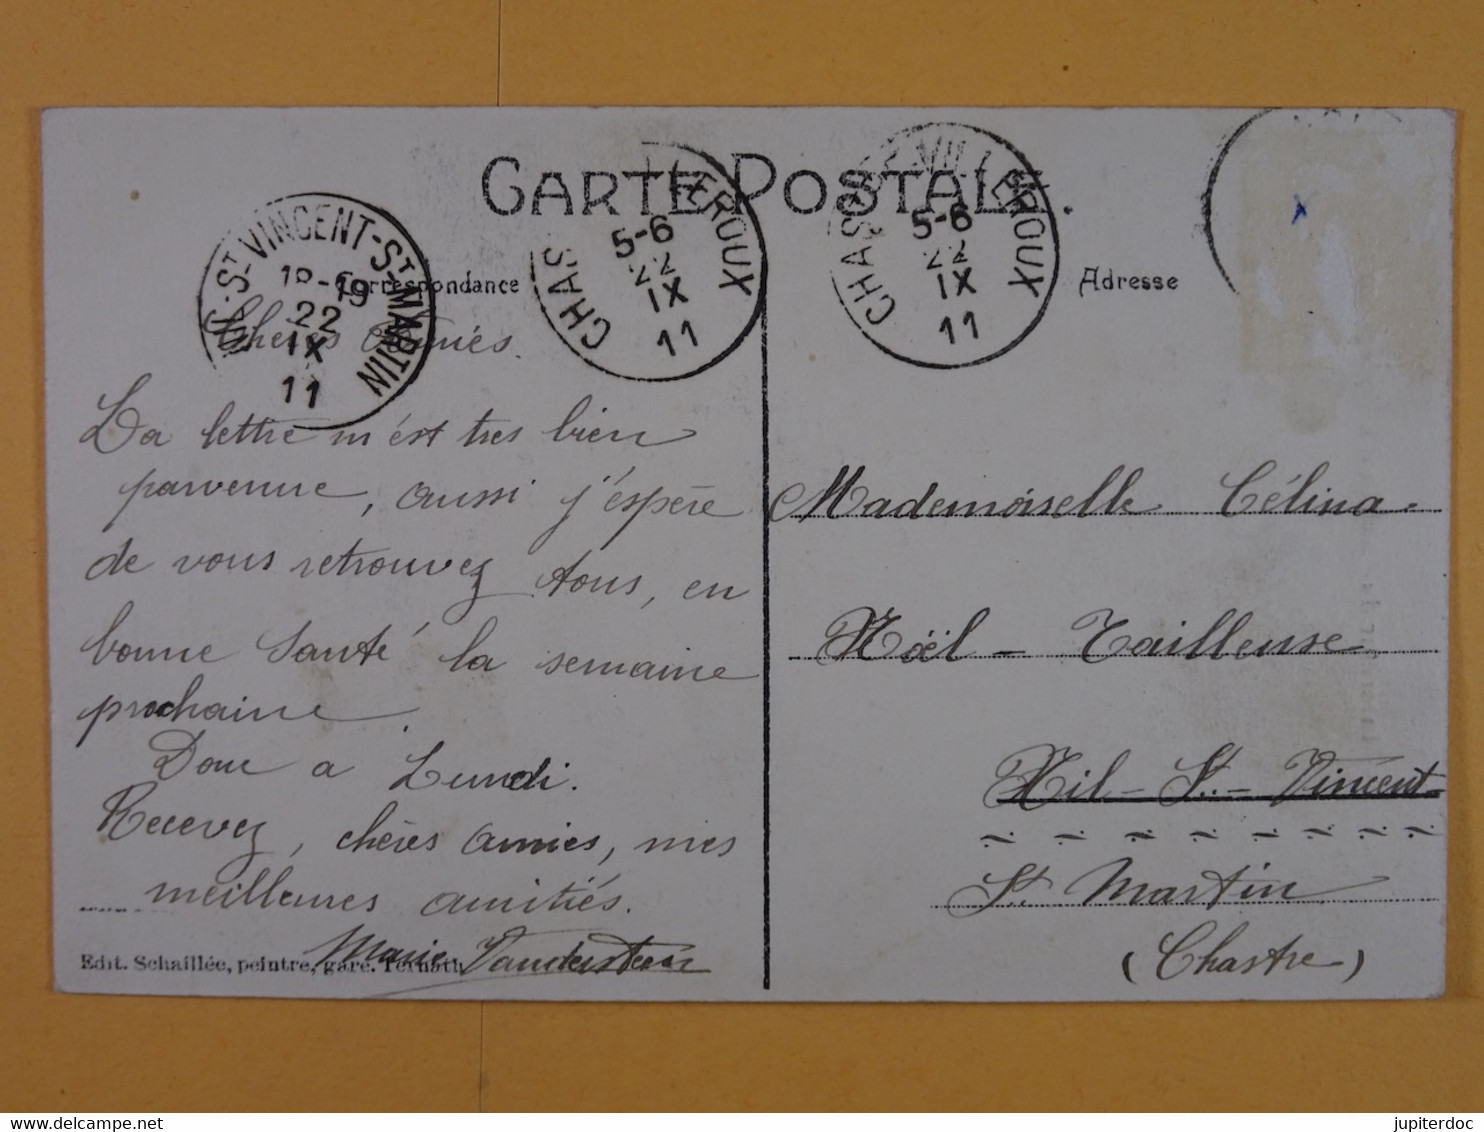 CARTE POSTALE.
Correspondance
Adresse
NIL-ST-VINCENT-ST-MARTIN
18-19
22
IX
11
CHAS LEROUX
5-6
22
IX
11
CHAS VILLEROUX
5-6
22
IX
11
Chères Amiés.
La lettre m'est tres bien
parvenue, aussi j'espère
de vous retrouvez tous, en
bonne Santé la semaine
prochaine.
Donc a Lundi.
Recevez, chères amies, mes
meilleures amitiés.
Marie
Edit. Schaillée, peintre, gare. Ternath
Mademoiselle Célina
Nöel - Tailleuse
Nil-St.-Vincent-
St. Martin
(Chastre)
jupiterdoc